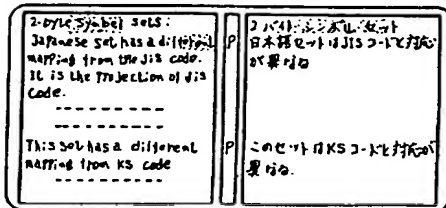 2-byte symbol sets:
Japanese set has a different
mapping from the Jis code.
It is the projection of Jis
code.
This set has a different
mapping from KS code
P
P
2バイト・シンボル・セット
日本語セットはJISコードと対応
が異なる
このセットはKSコードと対応が
異なる.